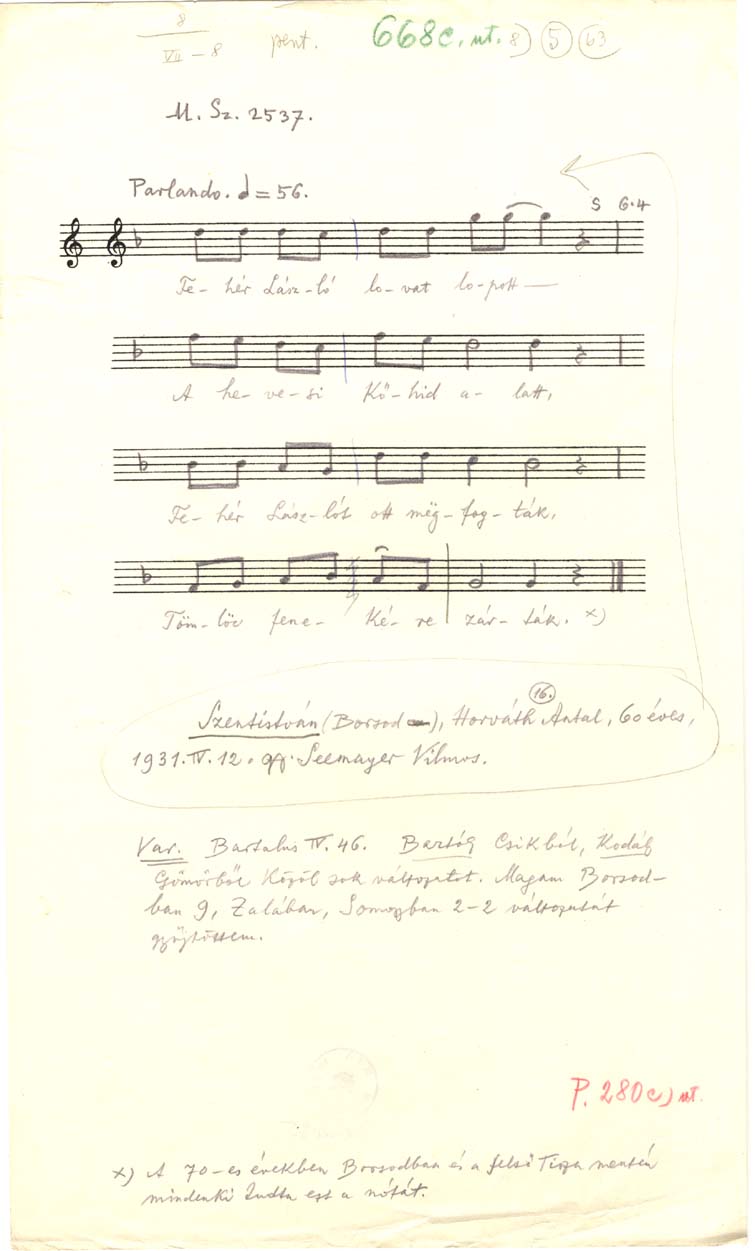 8
VII – 8 pent. 668c. ut. 8) 5 63
M. Sz. 2537.
Parlando. = 56.
S 6.4
Fe- hér Lász- ló lo- vat lo- pott
A he- ve- si Kő- hid a- latt,
Fe- hér Lász- lót ott mëg- fog- ták,
Töm- löc fene- Ké- re zár- ták. x)
16.
Szentistván (Borsod), Horváth Antal, 60 éves,
1931. IV. 12. gy. Seemayer Vilmos.
Var. Bartalus IV. 46. Bartók Csikból, Kodály
Gömörből Közöl sok változatot. Magam Borsod-
ban 9, Zalában, Somogyban 2-2 változatát
gyűjtöttem.
P. 280c) ut.
x) A 70-es években Borsodban és a felső Tisza mentén
mindenki tudta ezt a nótát.